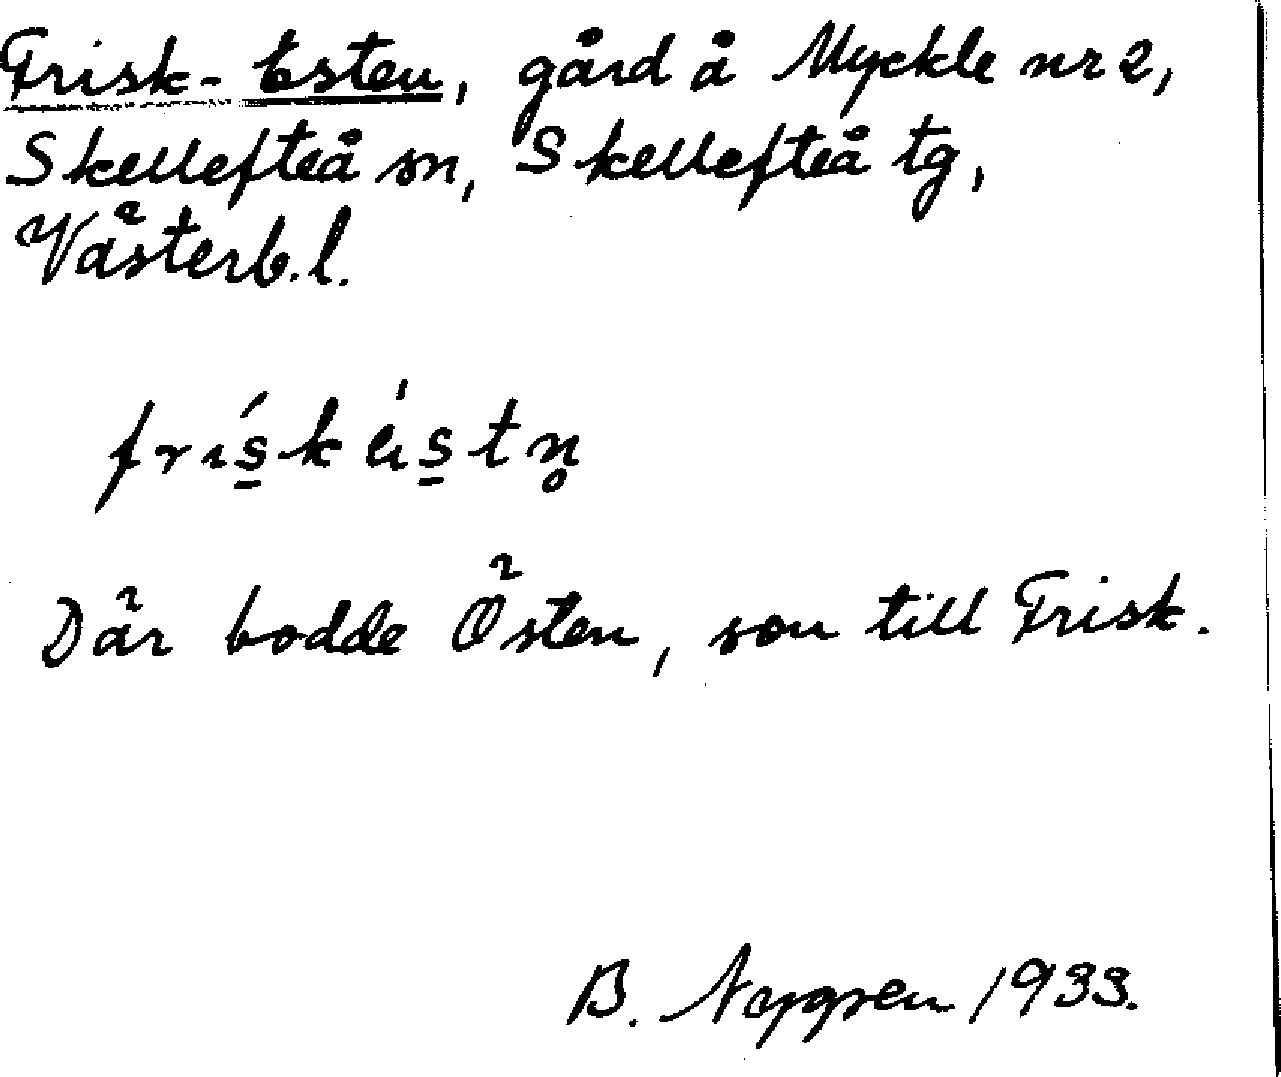 Frisk-Esten, gård å Myckle nr 2,
Skellefteå sn, Skellefteå tg,
Västerb. l.
Där bodde Östen, son till Frisk.
B. Nygren 1933.